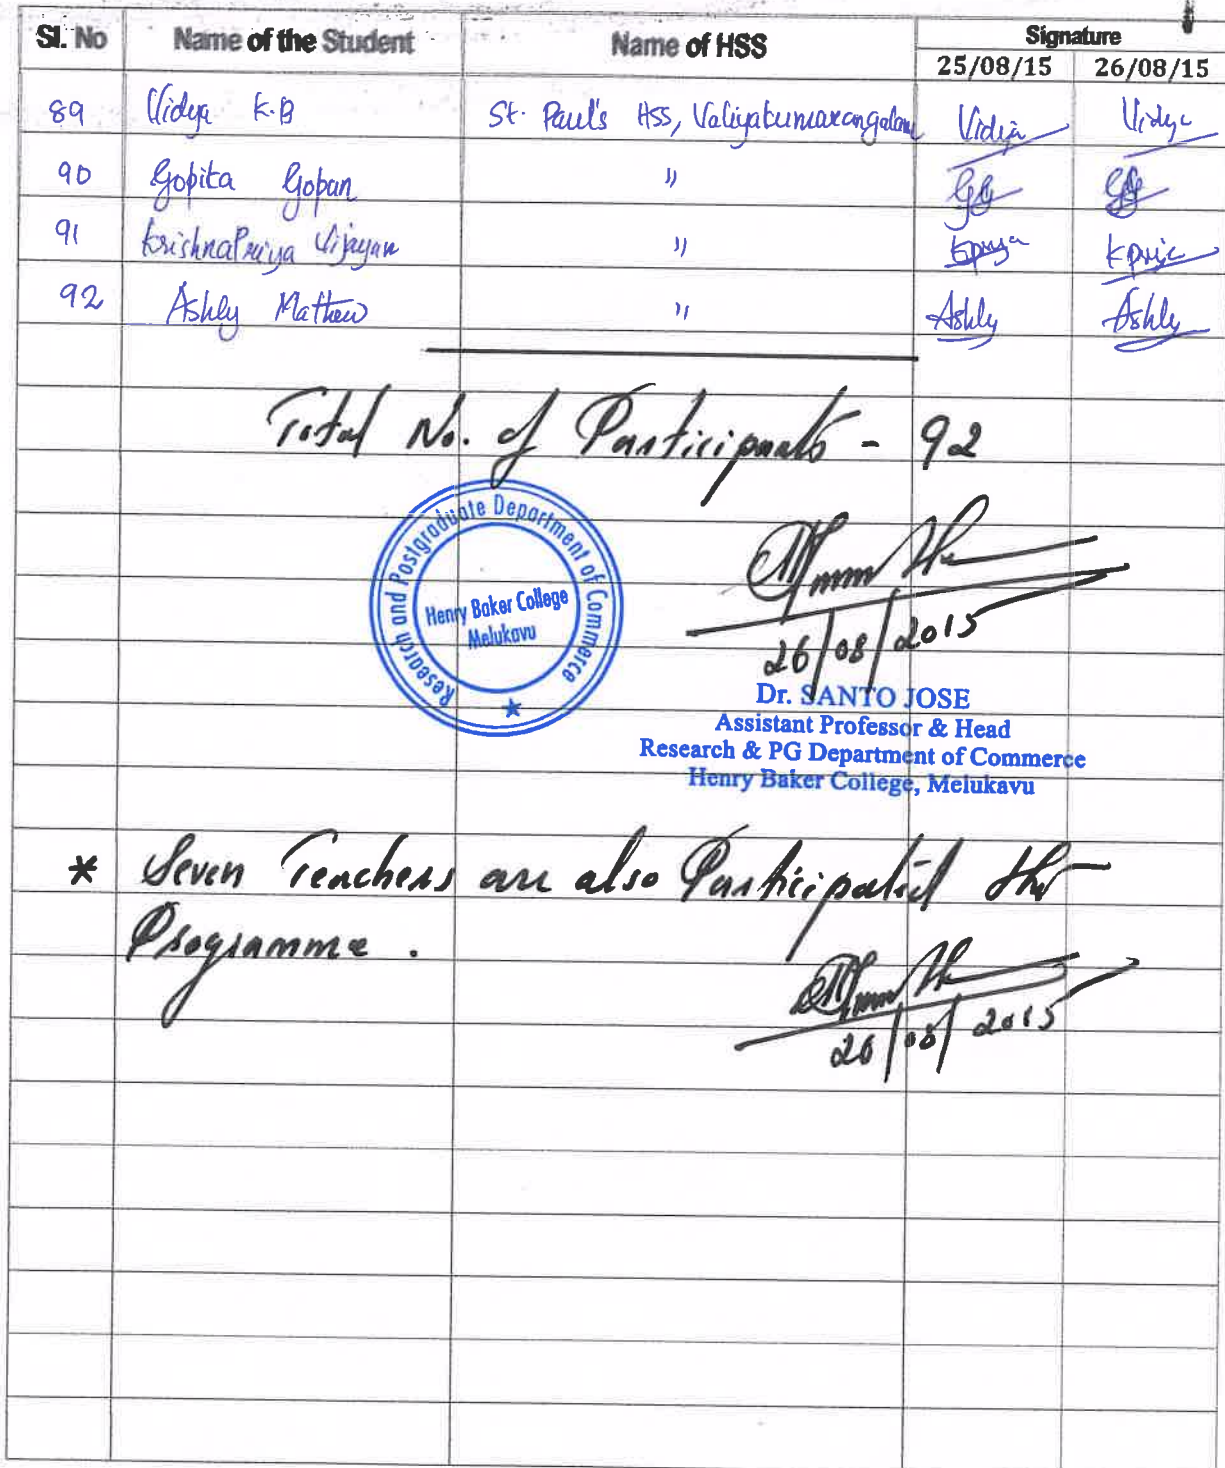 Sl. No Name of the Student Name of HSS Signature
25/08/15 26/08/15
89 Vidya K.B St. Paul's HSS, Valiyakumarangalam Vidya Vidya
90 Gopita Gopan " GG GG
91 KrishnaPriya Vijayan " Kpriya Kpriya
92 Ashly Mathew " Ashly Ashly
Total No. of Participants - 92
Research and Postgraduate Department of Commerce
Henry Baker College
Melukavu
26/08/2015
Dr. SANTO JOSE
Assistant Professor & Head
Research & PG Department of Commerce
Henry Baker College, Melukavu
* Seven Teachers are also Participated the
Programme .
26/08/2015